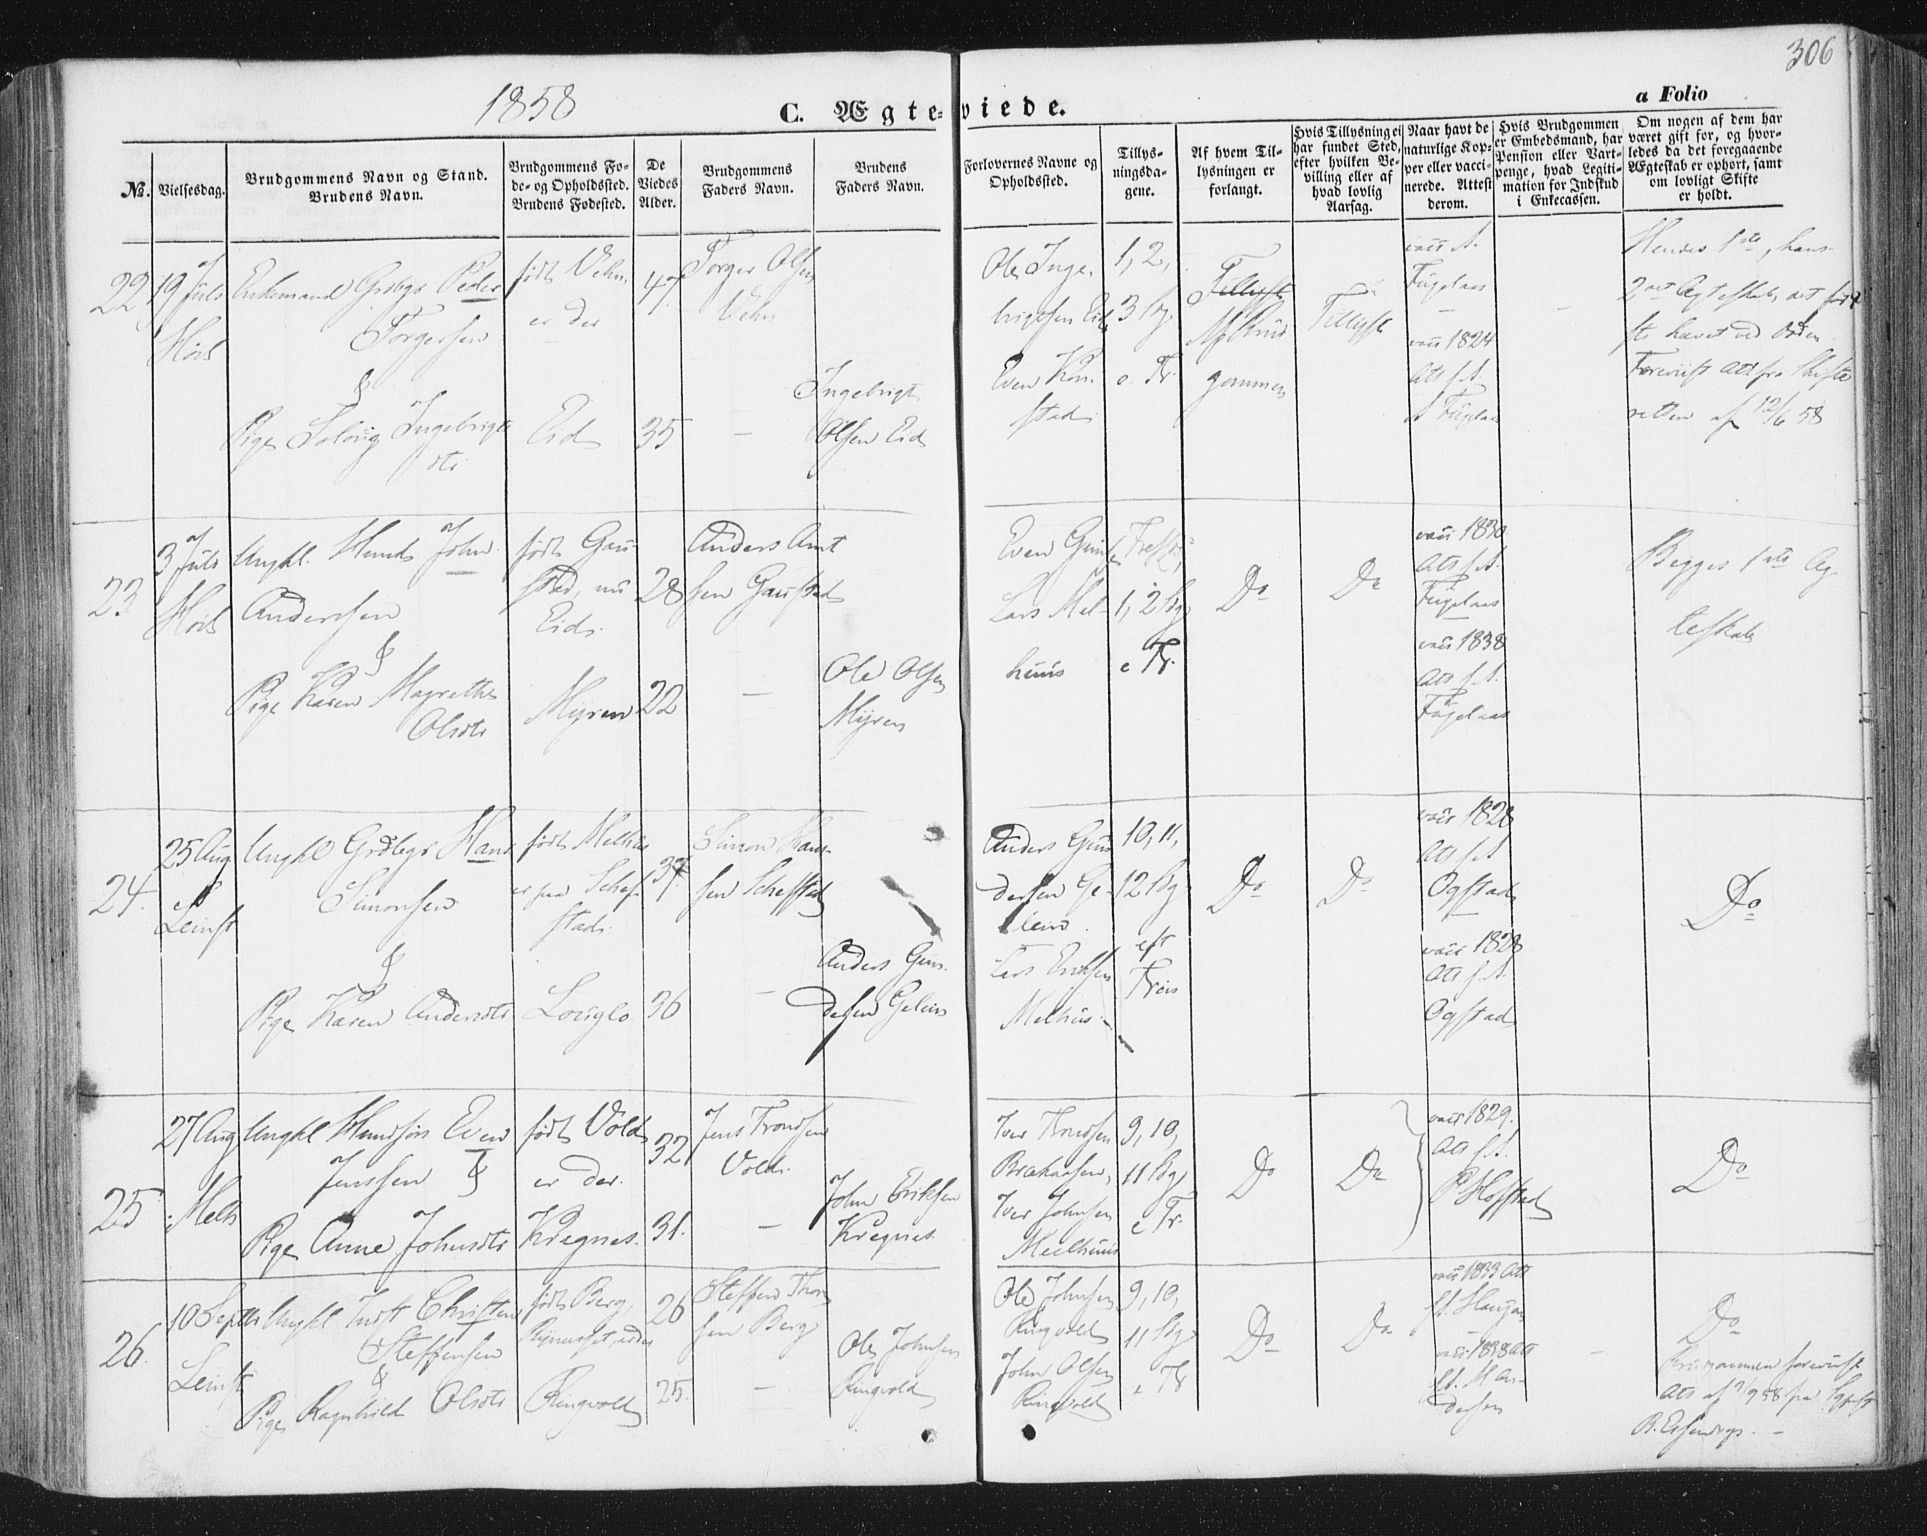 306
1858
C. Ægteviede.
a Folio
No.
Vielsesdag.
Brudgommens Navn og Stand.
Brudens Navn.
Brudgommens Fo-
de- og Opholdssted.
Brudens Fødested.
De
Viedes
Alder.
Brudgommens
Faders Navn.
Brudens
Faders Navn.
Forlovernes Navne og
Opholdssted.
Tillys-
ningsda-
gene.
Af hvem Til-
lysningen er
forlangt.
Hvis Tillysning ei
har fundet Sted,
efter hvilken Be-
villing eller af
hvad lovlig
Aarsag.
Naar havt de
naturlige Kop-
per eller vacci-
nerede. Attest
derom.
Hvis Brudgommen
er Embedsmand, har
Pension eller Vart-
penge, hvad Legiti-
mation for Indskud
i Enkecassen.
Om nogen af dem har
været gift for, og hvor-
ledes da det foregaaende
Ægteskab er ophørt, samt
om lovligt Skifte
er holdt.
22
19 Juli
Enkemand Grdbgr Peder
Torgersen
&
Pige Solvig Ingebrigt
dtr
født Vehn
er der
Eid
47
35
Torger Olsen
Vehn
Ingebrigt
Olsen Eid
Ole Inge-
brigtsen Eid
Even Kon-
stad
1, 2,
3 Sg
e. Tr.
gommen
Tillyst
vacc. A.
Fuglaas
vacc 1824
Att f. A.
Fuglaas
Hendes 1ste, hans
2det Ægteskab
retten af 12/6 58
23
3 Juli
Ungkl. Mand John
Anderssen
&
Pige Karen Magrethe
Olsdtr
født Gau-
stad, nu
Eid.
Myren
28
22
Anders Amt
sen Gaustad
Ole Olsen
Myren
Lars Mel-
huus
1, 2 Sg
e Tr.
Do
Do
vacc 1830
Att f. A.
Fuglaas
vacc 1838
Att f. A.
Fuglaas
Begges 1ste Æg
teskab
24.
25 Aug
Leinst
Ungkl Grdbgr Hans
Simonsen
&
Pige Karen Andersdtr
født Melhus
er paa Schef-
stad.
Louglo
37
36
Simon Han-
sen Schefstad
Anders Gun-
dersen Gelein
Anders Gun
dersen Ge-
lein.
Lars Eriksen
Melhus.
10, 11,
12 Sg
eft
Trin
Do
Do
vacc 1828
Att f. A
Ogstad
vacc 1828
Att f. A.
Ogstad
Do
25
27 Aug
Melh
Ungkl Mandsøn Even
Jenssen &
Pige Anne Johnsdtr
født Vold
er der.
Kregnes.
32
31.
Jens Trondsen
Vold.
John Eriksen
Kregnes
Iver Trondsen
Iver Johnsen
Meelhuus
9, 10,
11 Sg
e Tr.
Do
Do
vacc 1829.
Att f. A.
P Hofstad
Do
26.
10 Septbr
Leinst
Ungkl Indst Christen
Steffensen
&
Pige Ragnhild Olsdtr
født Berg,
Ringvold
26
25.
Steffen Thor
sen Berg
Ole Johnsen
Ringvold
Ole Johnsen
Ringvold
John Olsen
Ringvold
9, 10,
11 Sg
e Tr
Do
Do
vacc 1833 Att
vacc 1838 Att
Do